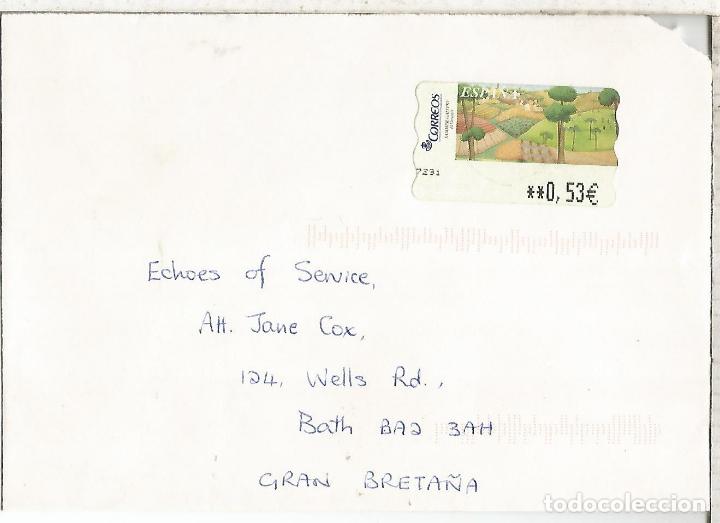 ESPAÑA
CORREOS
**0,53€
Echoes of Service,
Att. Jane Cox,
124, Wells Rd.,
Bath BA2 3AH
GRAN BRETAÑA
todocoleccion